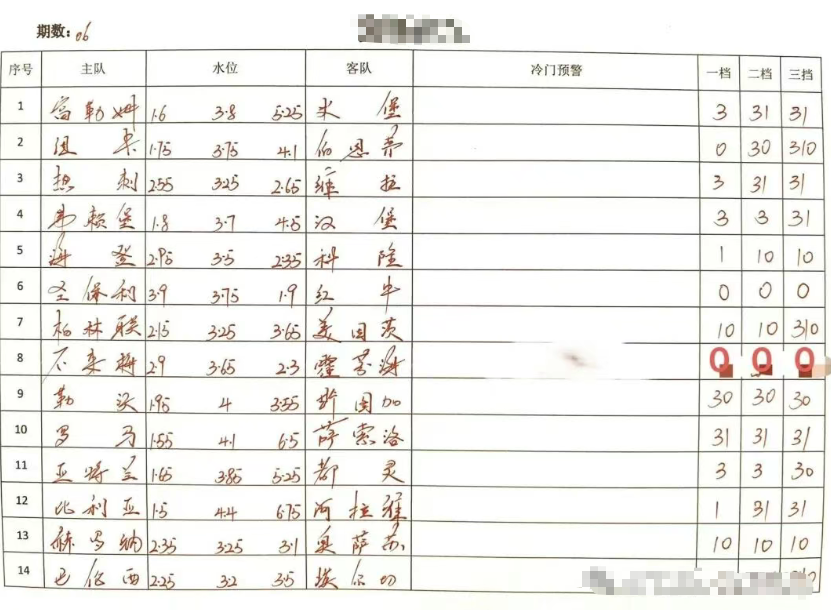 期数: 06
序号 主队 水位 客队 冷门预警 一档 二档 三档
1 富勒姆 1.6 3.8 5.25 米堡 3 31 31
2 纽卡 1.75 3.75 4.1 伯恩茅 0 30 310
3 热刺 2.55 3.25 2.65 维拉 3 31 31
4 弗赖堡 1.8 3.7 4.5 汉堡 3 3 31
5 海登 2.95 3.5 2.35 科隆 1 10 10
6 圣保利 3.9 3.75 1.9 红牛 0 0 0
7 柏林联 2.15 3.25 3.65 美因茨 10 10 310
8 不来梅 2.9 3.65 2.3 霍芬海 0 0 0
9 勒沃 1.95 4 3.55 斯图加 30 30 30
10 罗马 1.55 4.1 6.5 萨索洛 31 31 31
11 亚特兰 1.65 3.85 5.25 都灵 3 3 30
12 比利亚 1.5 4.4 6.75 阿拉维 1 31 31
13 赫罗纳 2.35 3.25 3.1 奥萨苏 10 10 10
14 巴伦西 2.25 3.2 3.5 埃尔切